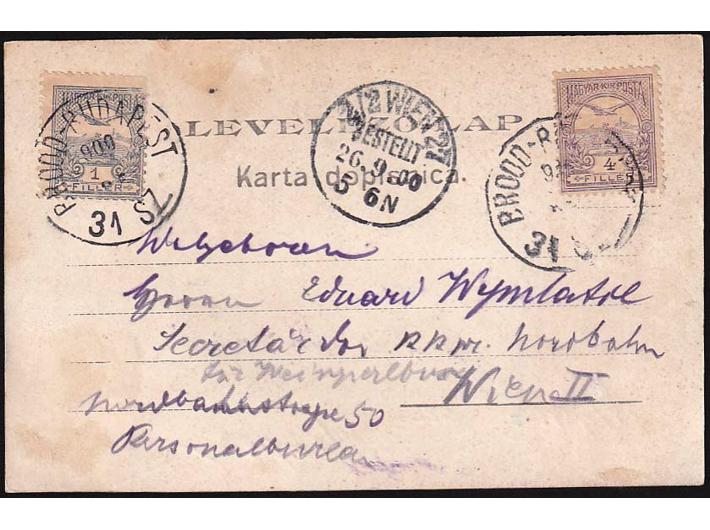 MAGYAR KIR. POSTA
1
FILLÉR
BROOD-BUDAPEST
900
31 SZ
LEVELEZŐ-LAP
Karta dopisnica.
2/2 WIEN 2/2
BESTELLT
26.9.00
5-6N
MAGYAR KIR. POSTA
4
FILLÉR
BROOD-B
31
Welgeboren
Herrn Eduard
Secretär der KK pr. Nordbahn
Wien II
Nordbahnstrasse 50
Personalbureau